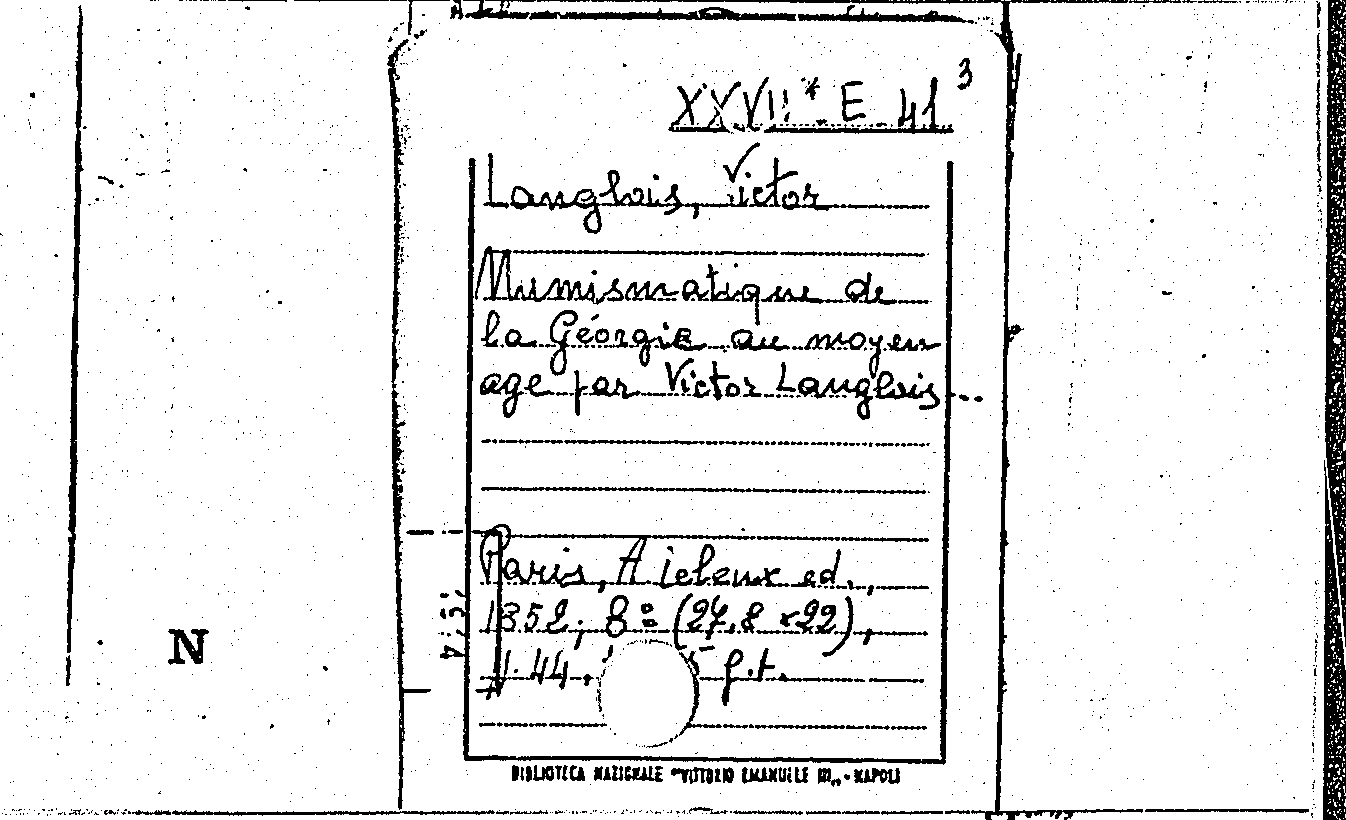 XXVII * E 41 3
Langlois, Victor
Numismatique de
la Géorgie au moyen
age par Victor Langlois...
Paris, A leleux ed.,
1852, 8º (27,8 x 22),
44. f.t.
N
BIBLIOTECA NAZIONALE "VITTORIO EMANUELE III" - NAPOLI